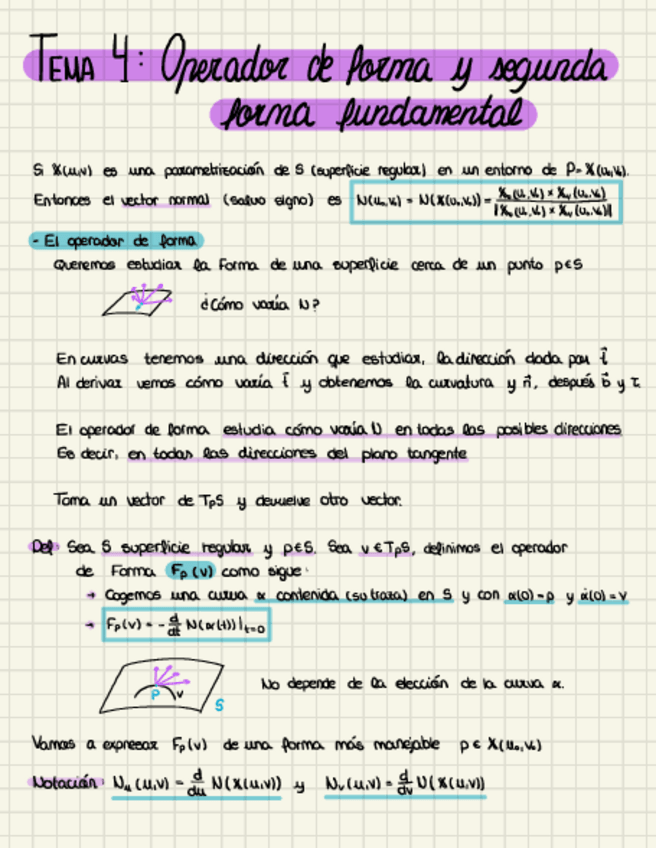 TEMA 4: Operador de forma y segunda
forma fundamental
Si X(u,v) es una parametrización de S (superficie regular) en un entorno de P=X(u₀,v₀).
Entonces el vector normal (salvo signo) es N(u₀,v₀) = N(X(u₀,v₀)) = Xᵤ(u₀,v₀) × Xᵥ(u₀,v₀) / |Xᵤ(u₀,v₀) × Xᵥ(u₀,v₀)|
- El operador de forma
Queremos estudiar la Forma de una superficie cerca de un punto p∈S
¿Cómo varía N?
En curvas tenemos una dirección que estudiar, la dirección dada por t⃗
Al derivar vemos cómo varía t⃗ y obtenemos la curvatura y n⃗, después b⃗ y τ
El operador de forma estudia cómo varía N en todas las posibles direcciones
Es decir, en todas las direcciones del plano tangente
Toma un vector de TₚS y devuelve otro vector.
Def Sea S superficie regular y p∈S. Sea v∈TₚS, definimos el operador
de Forma Fₚ(v) como sigue:
→ Cogemos una curva α contenida (su traza) en S y con α(0)=p y α̇(0)=v
→ Fₚ(v) = - d/dt N(α(t))|ₜ₌₀
P v S
No depende de la elección de la curva α.
Vamos a expresar Fₚ(v) de una forma más manejable p ∈ X(u₀,v₀)
Notación: Nᵤ(u,v) = d/du N(X(u,v)) y Nᵥ(u,v) = d/dv N(X(u,v))